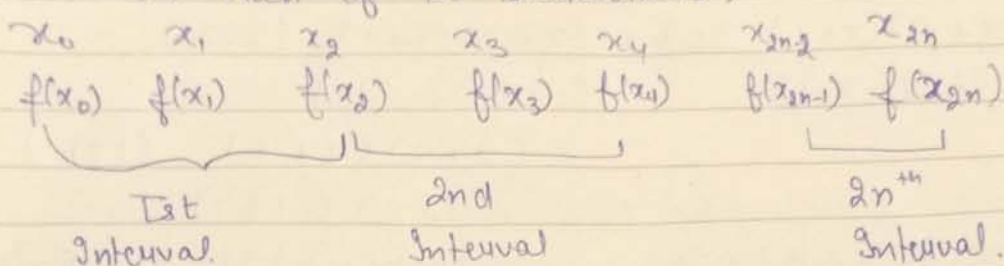 x₀ x₁ x₂ x₃ x₄ x₂ₙ₋₂ x₂ₙ
f(x₀) f(x₁) f(x₂) f(x₃) f(x₄) f(x₂ₙ₋₁) f(x₂ₙ)
Ist 2nd 2nᵗʰ
Interval. Interval Interval.